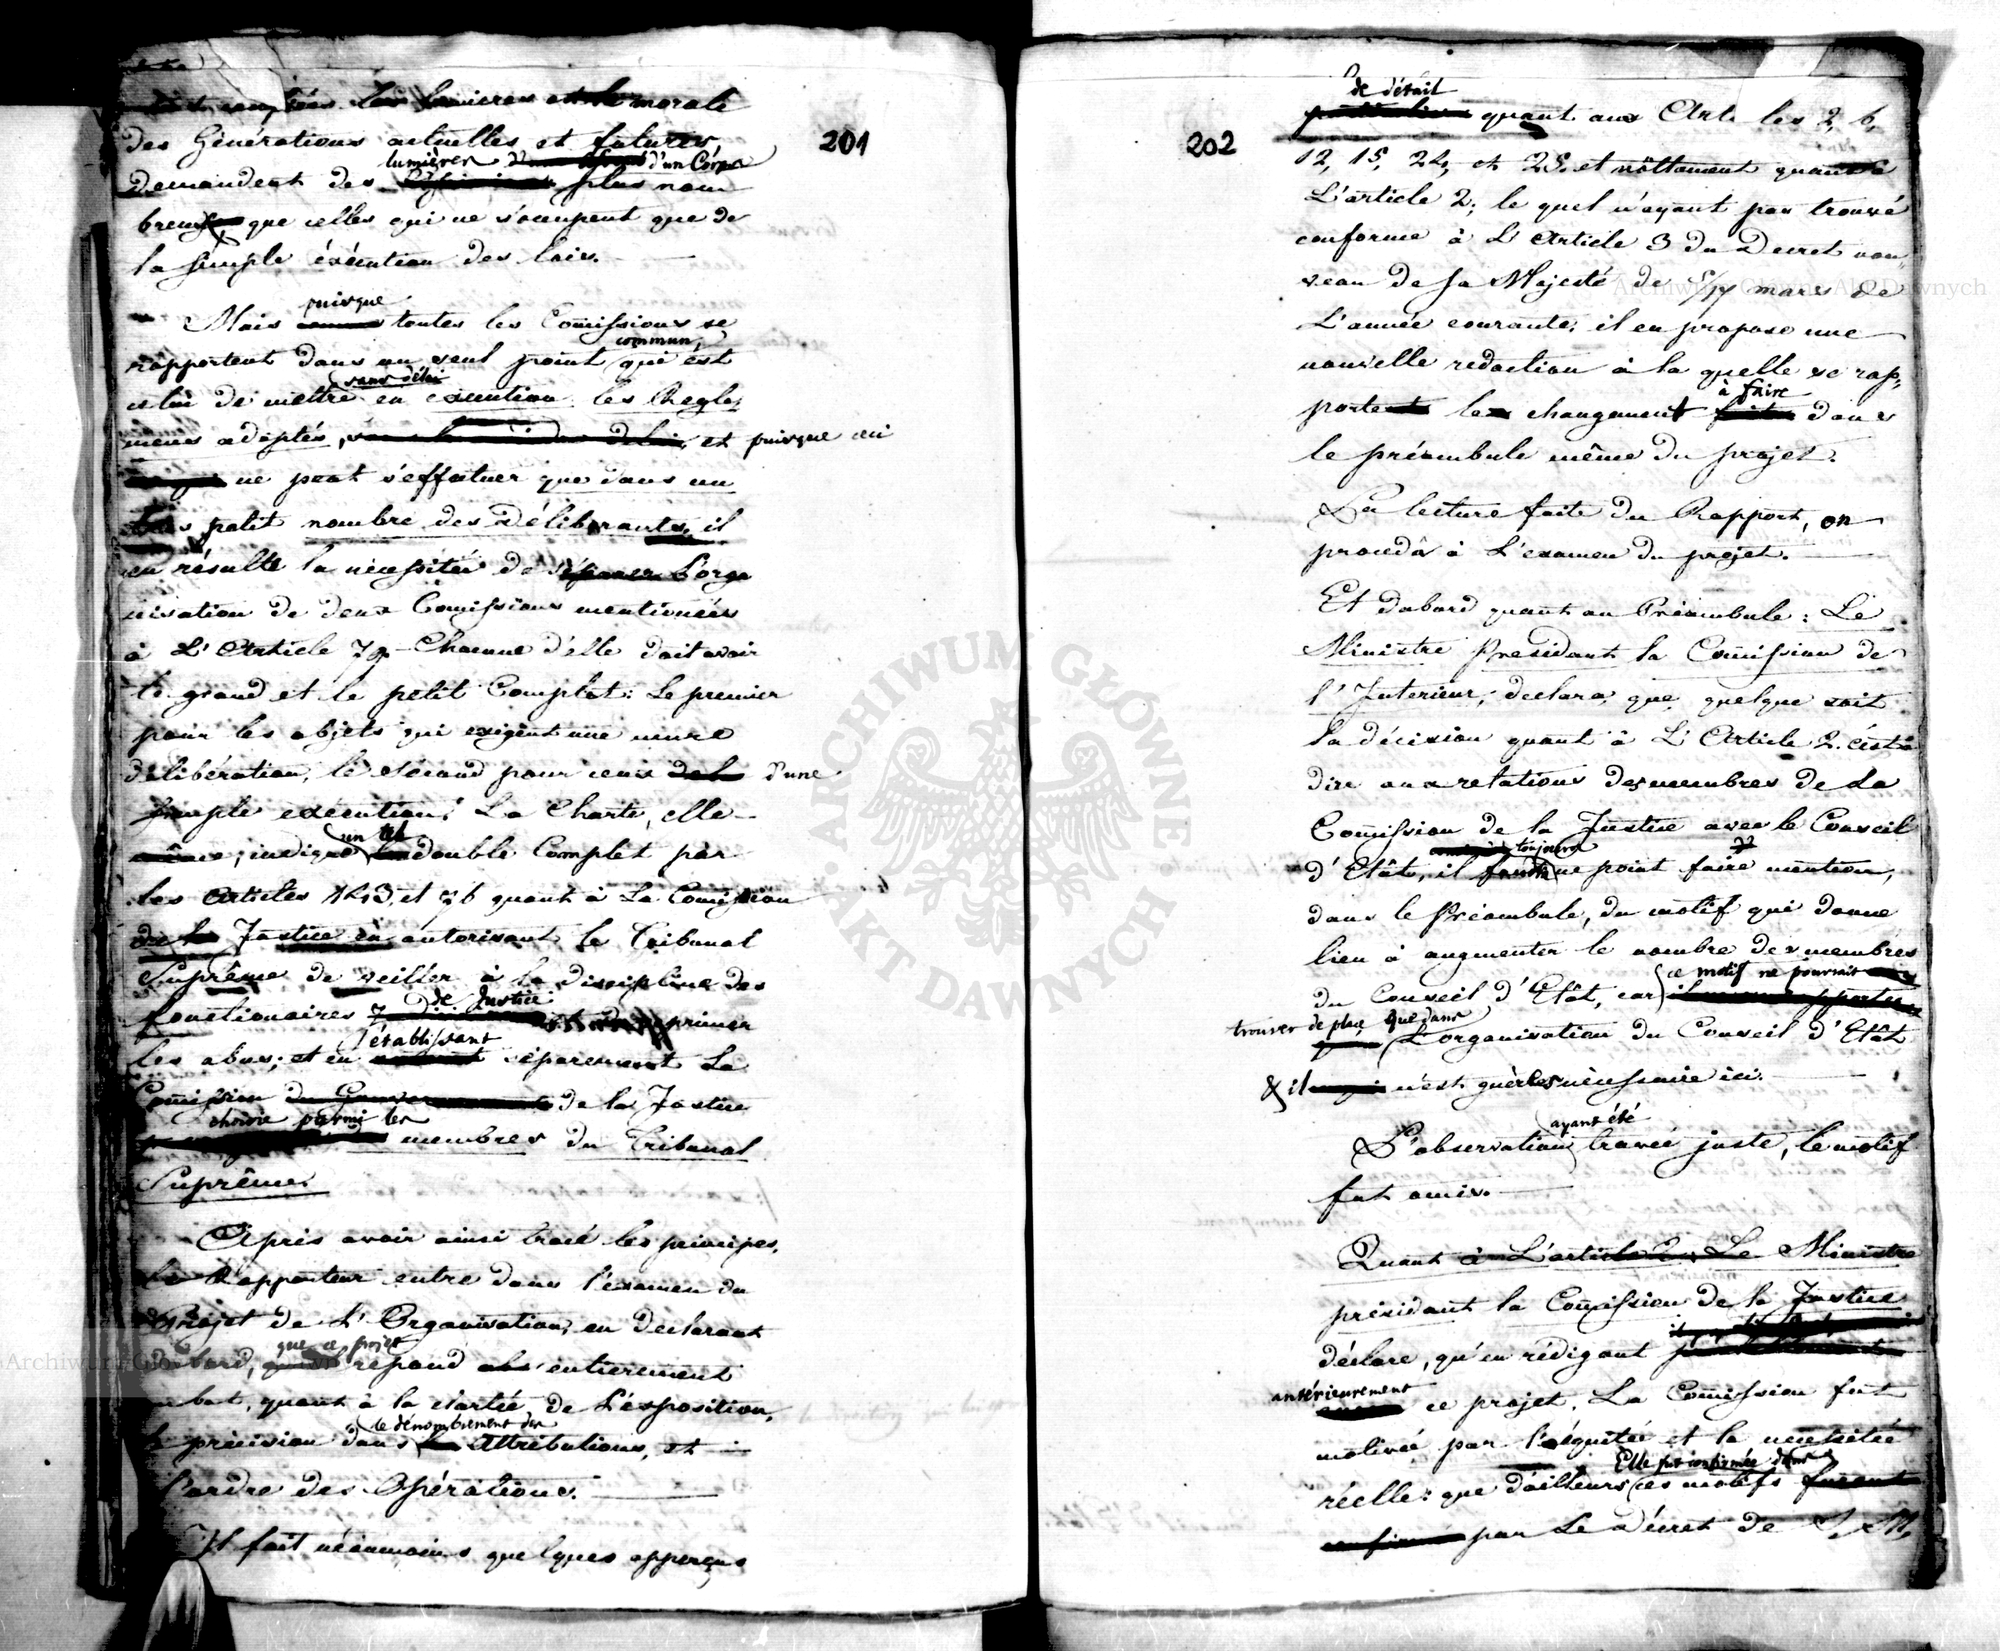 201
les lumieres et la morale
des Générations actuelles et futures,
lumières d'un Corps
demandent des plus nom
breux que celles qui ne s'occupent que de
la simple éxécution des loix.
puisque
Mais comme toutes les Comissions se
commun,
rapportent dans un seul point qui est
sans délai
celui de mettre en execution les Regle,
mens adoptés, et puisque ceci
ne peut s'effectuer que dans un
petit nombre des Délibérants, il
en résulte la nécessité de l'orga
nisation de deux Comissions mentionées
à L'Article 79. Chacune d'elle doit avoir
le grand et le petit Complet: Le premier
pour les objets qui exigent une mure
délibération, le second pour ceux de la d'une
simple exécution. La Charte, elle
un tel
même, indique double Complet par
les Articles et 76 quant à La Comission
de la Justice en autorisant le Tribunal
Suprême de veiller à la discipline des
de Justice
fonctionaires primer
l'établissant
les abus; et en séparement La
Comission du de la Justice
choisie parmi les
membres du Tribunal
Suprême.
Après avoir ainsi tracé les principes,
Le Rapporteur entre dans l'examen du
Projet de L'Organisation, en declarant
que ce projet
d'abord, repond entierement
but, quant à la clartée de l'exposition,
le dénombrement des
la précision dans Attributions, et
l'ordre des Opérations.
Il fait néanmoins quelques apperçus
202
de détail
quant aux Art. les 2, 6,
12, 15, 24, et 25. et nottament quant à
L'article 2; le quel n'ayant pas trouvé
conforme à L'Article 3 du Decret nou,
veau de Sa Majesté de 5/17 mars de
L'année courante, il en propose une
nouvelle redaction à la quelle se rap,
à faire
porte le changement faits dans
le préambule même du projet.
La lecture faite du Rapport, on
procedà à L'examen du projet.
Et dabord quant au Préambule: Le
Ministre Présidant la Comission de
l'Interieur, declara, que, quelque soit
la décision quant à L'Article 2. c'est à
dire aux relations des membres de La
Comission de la Justice avec le Conseil
toujours
d'Etât, il ne point faire mention,
dans le Préambule, du motif qui donne
lieu à augmenter le nombre des membres
ce motif ne pourrait
du Conseil d'Etât, car
trouver de place que dans
L'organisation du Conseil d'Etât
& il n'est guères nécessaire ici.
ayant été
L'observation trouvée juste, le motif
fut omis.
Quant à L'article 2, Le Ministre
présidant la Comission de la Justice
déclare, qu'en rédigeant
antérieurement
ce projet, La Comission fut
motivée par l'équitée et la necessitée
Elle fut confirmée dans
réelle: que d'ailleurs ces motifs furent
confirmés par Le Décret de S. M.
ARCHIWUM GŁÓWNE AKT DAWNYCH
Archiwum Główne Akt Dawnych